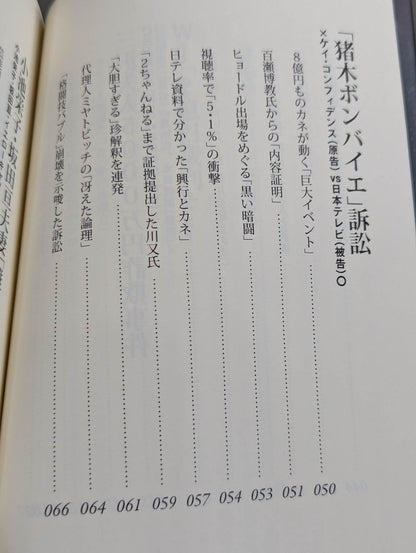 「猪木ボンバイエ」訴訟
×ケイ・コンフィデンス(原告) vs 日本テレビ(被告)○
8億円ものカネが動く「巨大イベント」 050
百瀬博教氏からの「内容証明」 051
ヒョードル出場をめぐる「黒い暗闘」 053
視聴率で「5・1％」の衝撃 054
日テレ資料で分かった「興行とカネ」 057
「2ちゃんねる」まで証拠提出した川又氏 059
「大胆すぎる」珍解釈を連発 061
代理人ミヤトビッチの「冴えた論理」 064
「格闘技バブル」崩壊を示唆した訴訟 066